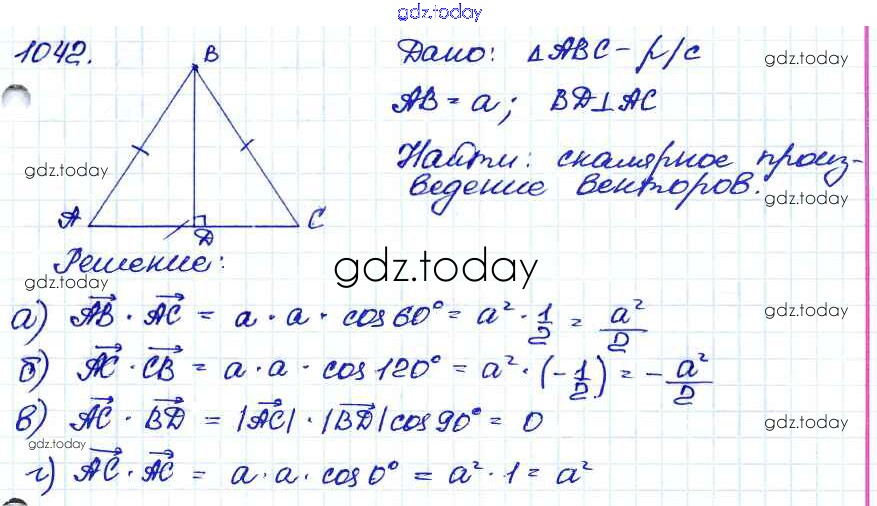 gdz.today
1042.
B
A
D
C
Дано: △ABC - р/с
AB = a; BD⊥AC
Найти: скалярное произ-
ведение векторов.
gdz.today
gdz.today
gdz.today
Решение:
gdz.today
gdz.today
а) AB⃗ · AC⃗ = a · a · cos 60° = a² · 1/2 = a²/2
gdz.today
б) AC⃗ · CB⃗ = a · a · cos 120° = a² · (-1/2) = -a²/2
в) AC⃗ · BD⃗ = |AC⃗| · |BD⃗| cos 90° = 0
gdz.today
gdz.today
г) AC⃗ · AC⃗ = a · a · cos 0° = a² · 1 = a²